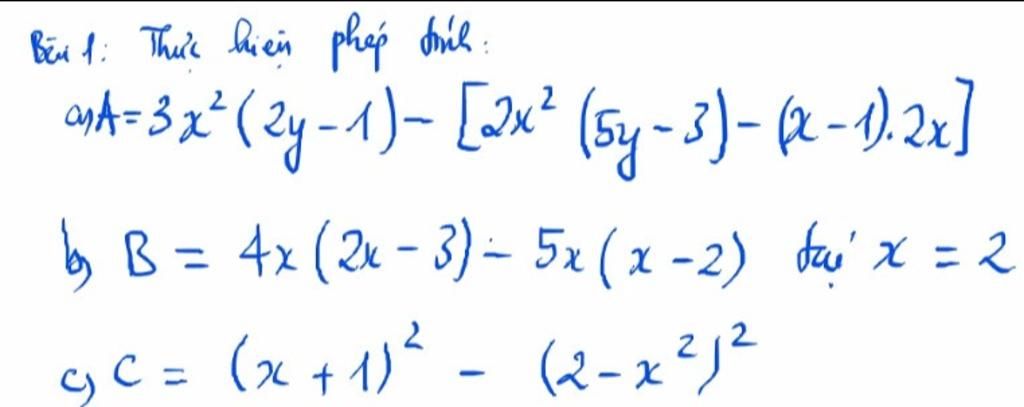 Bài 1: Thực hiện phép tính:
a) A = 3x² (2y - 1) - [2x² (5y - 3) - (x - 1). 2x]
b) B = 4x (2x - 3) - 5x (x - 2) tại x = 2
c) C = (x + 1)² - (2 - x²)²